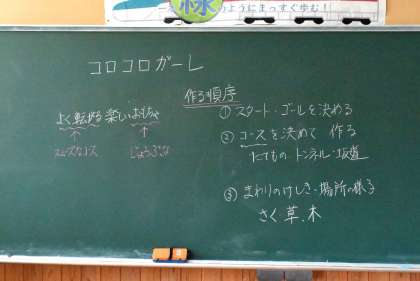 緑
のようにまっすぐ歩む！
コロコロガーレ
作る順序
よく転がる楽しいおもちゃ
スムーズなコース
じょうぶな
① スタート・ゴールを決める
② コースを決めて 作る
たてもの トンネル・坂道
③ まわりのけしき・場所の様子
さく 草、木